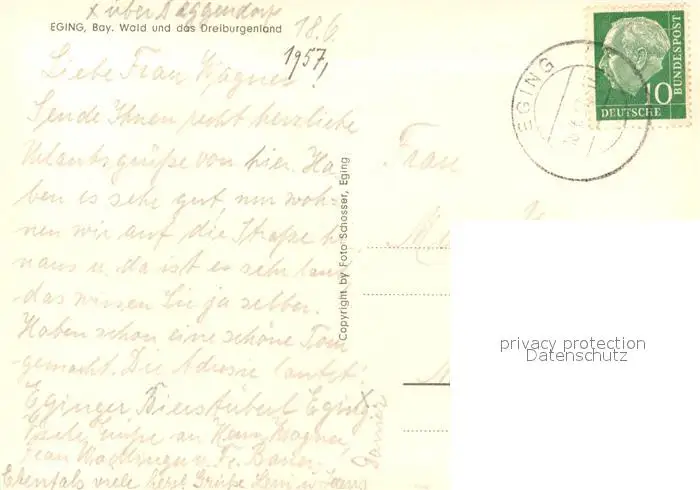 x über Deggendorf
18.6.
EGING, Bay. Wald und das Dreiburgenland
1957,
Liebe Frau Wagner!
Sende Ihnen recht herzliche
Urlaubsgrüße von hier. Ha-
ben es sehr gut, nur woh-
nen wir auf die Straße hi-
naus u. da ist es sehr laut
das wissen Sie ja selber.
Haben schon eine schöne Tour
gemacht. Die Adresse lautet:
Eginger Bierstüberl Eging x
Viele Grüße an Herrn Wagner,
Frau u. Fr.
Ebenfalls viele herzl. Grüße
Copyright by Foto Schosser, Eging
Frau
EGING
10
DEUTSCHE
BUNDESPOST
privacy protection
Datenschutz